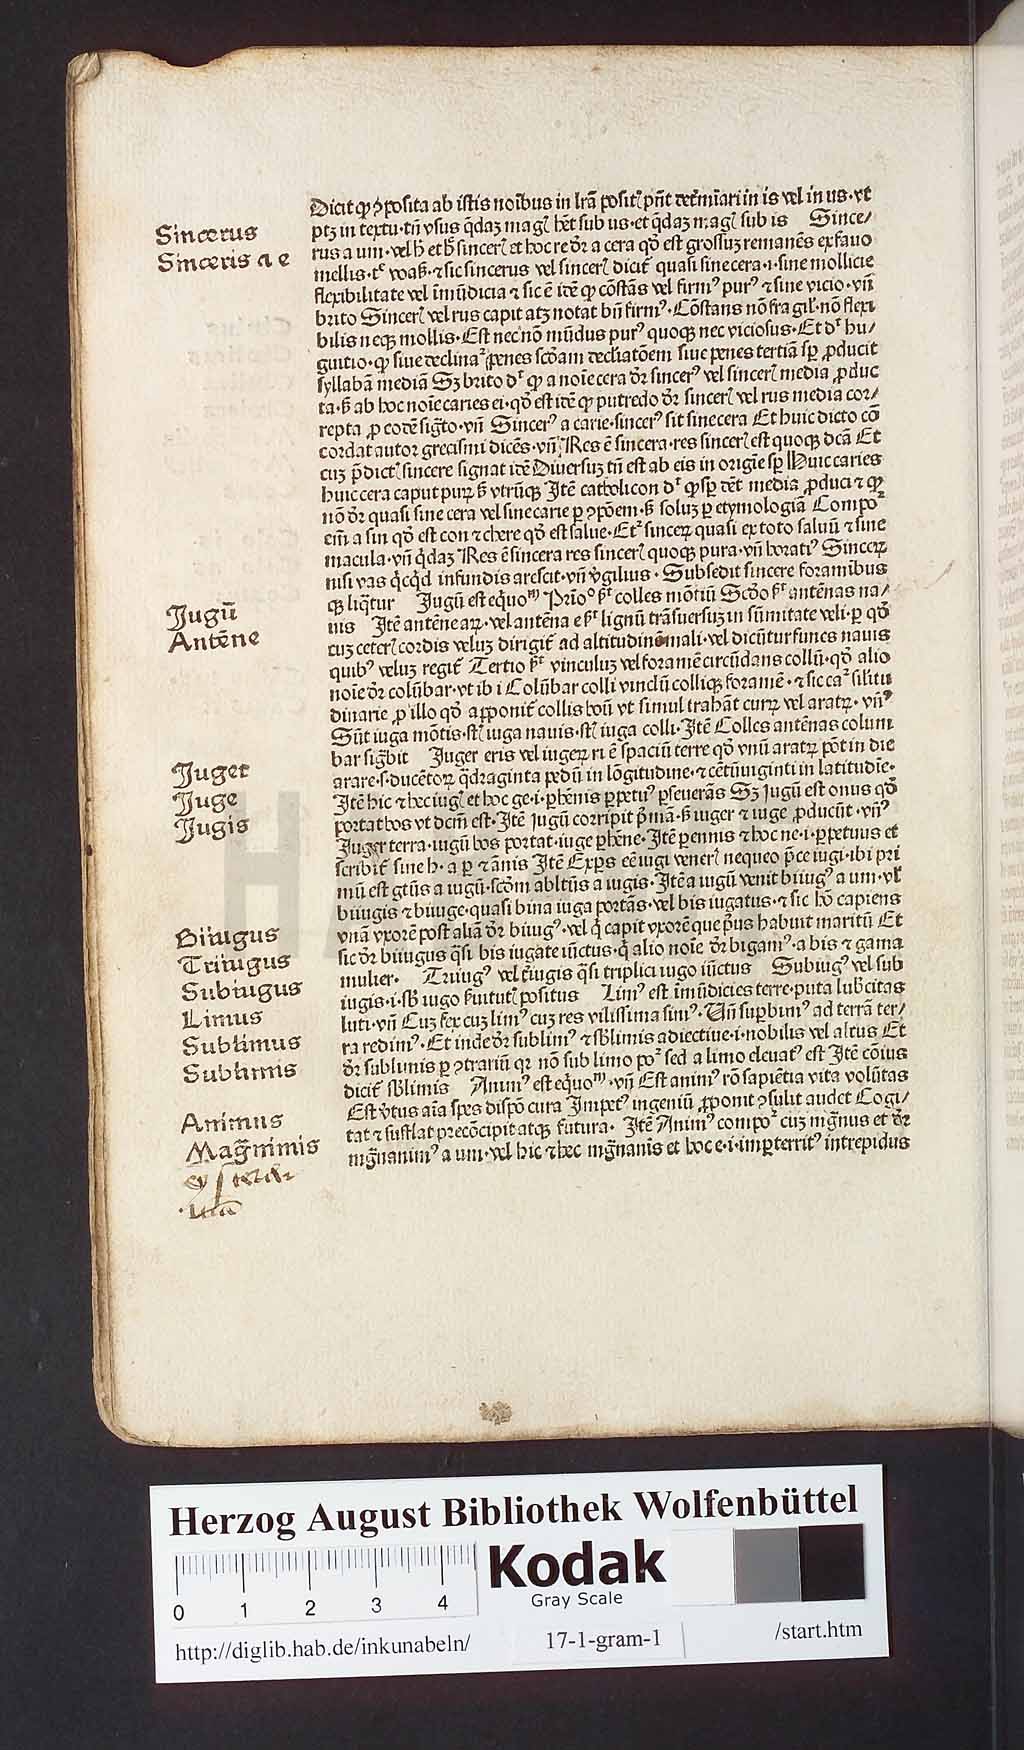 Dicit ꝙ ꝯposita ab istis noībus in lr̄a posit pn̄t termīari in is vel in us · vt
ptꝫ in textu · tn̄ vsus q̄daꝫ magꝭ hēt sub us · et q̄daꝫ magꝭ sub is Since/
rus a um · vel hꝭ et hꝭ sincerꝭ et hoc re dr̄ a cera qď est grossuꝫ remanēs ex fauo
mellis · tꝭ voaꝭ · ⁊ sic sincerus vel sincerꝭ dicit quasi sine cera · i · sine mollicie
flexibilitate vel īmūdicia ⁊ sic ē idē ꝙ cōstās vel firmꝰ purꝰ ⁊ sine vicio · vn̄
brito Sincerꝭ vel rus capit atꝫ notat bn̄ firmꝰ · Cōstans nō fragilꝭ · nō flexi
bilis neqꝫ mollis · Est nec nō mūdus purꝰ quoqꝫ nec viciosus · Et dꝛ hu/
guitio · ꝙ siue declinaꝛ penes scďam declīatōem siue penes tertiā sꝑ ꝓducit
syllabā mediā Sꝫ brito dꝛ ꝙ a noīe cera dr̄ sincerꝰ vel sincerꝭ media ꝓduc
ta · sꝫ ab hoc noīe caries ei · qď est idē ꝙ putredo dr̄ sincerꝭ vel rus media cor/
repta ꝓ eodē siḡto · vn̄ Sincerꝰ a carie · sincerꝰ sit sine cera Et huic dicto cō
cordat autor grecismi dicēs · vn̄ Res ē sincera · res sincerꝭ est quoqꝫ dcā Et
cuꝫ p̄dictꝭ sincere signat idē Diuersuꝫ tn̄ est ab eis in origīe sꝑ Huic caries
huic cera caput puꝫ sꝫ vtrūqꝫ Itē catholicon dꝛ ꝙ sꝑ dēt media ꝓduci ⁊ ꝙ
nō dr̄ quasi sine cera vel sine carie ꝑ ꝯpōem · sꝫ soluꝫ ꝑ etymologiā Compoꝛ
em̄ a sin qď est con ⁊ chere qď est salue · Etꝛ sinceꝝ quasi ex toto saluū ⁊ sine
macula · vn̄ q̄daꝫ Res ē sincera res sincerꝭ quoqꝫ pura · vn̄ horatiꝰ Sinceꝝ
nisi vas q̄cq̄d infundis arescit · vn̄ v̄gilius · Subsedit sincere foramibus
qꝫ liq̄tur Jugū est eq̄uoᵐ) Prīo ē colles mōtiū Scďo ē antēnas na/
uis Itē antēne aꝝ · vel antēna e ē lignū trāsuersuꝫ in sūmitate veli · ꝑ qď
cuꝫ ceterꝭ cordis veluꝫ dirigit ad altitudinē mali · vel dicūtur funes nauis
quibꝰ veluꝫ regit Tertio ē vinculuꝫ vel foramē circūdans collū · qď alio
noīe dr̄ colūbar · vt ibi Colūbar colli vinclū colliqꝫ foramē · ⁊ sic caꝛ silitu
dinarie ꝓ illo qď apponit collis boū vt simul trahāt curꝝ vel aratꝝ · vn̄ꝰ
Sūt iuga mōtis · stꝭ iuga nauis · stꝭ iuga colli · Itē Colles antēnas colum
bar siḡbit Juger eris vel iugeꝝ ri ē spaciū terre qď vnū aratꝝ pōt in die
arare · s · ducētoꝝ q̄draginta pedū in lōgitudine · ⁊ cētū uiginti in latitudīe ·
Itē hic ⁊ hec iugꝭ et hoc ge · i · ꝑhēnis ꝑpetuꝰ ꝑseuerās Sꝫ Jugū est onus qď
portat bos vt dcm̄ est · Itē Jugū corripit p̄mā · sꝫ iuger ⁊ iuge ꝓducūt · vn̄ꝰ
Juger terra · iugū bos portat · iuge ꝑhēne · Itē ꝑennis ⁊ hoc ne · i · ꝑpetuus et
scribit sine h · a ꝑ ⁊ ānis Itē Exꝑs eē iugi venerꝭ nequeo p̄ce iugi · ibi pri
mū est gtūs a iugū · scďm abltūs a iugis · Itē a iugū venit biiugꝰ a um · vl
biiugis ⁊ biiuge · quasi bina iuga portās · vel bis iugatus · ⁊ sic hō capiens
vnā vxorē post aliā dr̄ biiugꝰ · vel q̄ capit vxorē que p̄us habuit maritū Et
sic dr̄ biiugus q̄si bis iugate iūctus · q̄ alio noīe dr̄ bigamꝰ · a bis ⁊ gama
mulier · Triiugꝰ vel t̄iugis q̄si triplici iugo iūctus Subiugꝰ vel sub
iugis · i · sbꝭ iugo ſuitutꝭ positus Limꝰ est īmūdicies terre · puta lubꝛcitas
luti · vn̄ Cuꝫ fex cuꝫ limꝰ cuꝫ res vilissima simꝰ · Vn̄ suꝑbimꝰ ad terrā ter/
ra redimꝰ · Et inde dr̄ sublimꝰ ⁊ sblimis adiectiue · i · nobilis vel altus Et
dr̄ sublimis ꝑ ꝯtrariū qꝛ nō sub limo poꝛ sed a limo eleuatꝰ est Itē cōius
dicit sblimis Animꝰ est eq̄uoᵐ) · vn̄ Est animꝰ rō sapiētia vita volūtas
Est v̄tus aīa spes dispō cura Impetꝰ ingeniū ꝓponit ꝯsulit audet Cogi/
tat ⁊ sufflat precōcipit atqꝫ futura · Itē Animꝰ compoꝛ cuꝫ mg̃nus et dr̄
mg̃nanimꝰ a um · vel hic ⁊ hec mg̃nanīs et hoc e · i · imꝑterritꝰ intrepidus
Sincerus
Sinceris a e
Jugū
Antēne
Juger
Juge
Jugis
Biiugus
Triiugus
Subiugus
Limus
Sublimus
Sublimis
Animus
Mag̃nimis
HAB
Herzog August Bibliothek Wolfenbüttel
Kodak
Gray Scale
0 1 2 3 4
http://diglib.hab.de/inkunabeln/ 17-1-gram-1 /start.htm